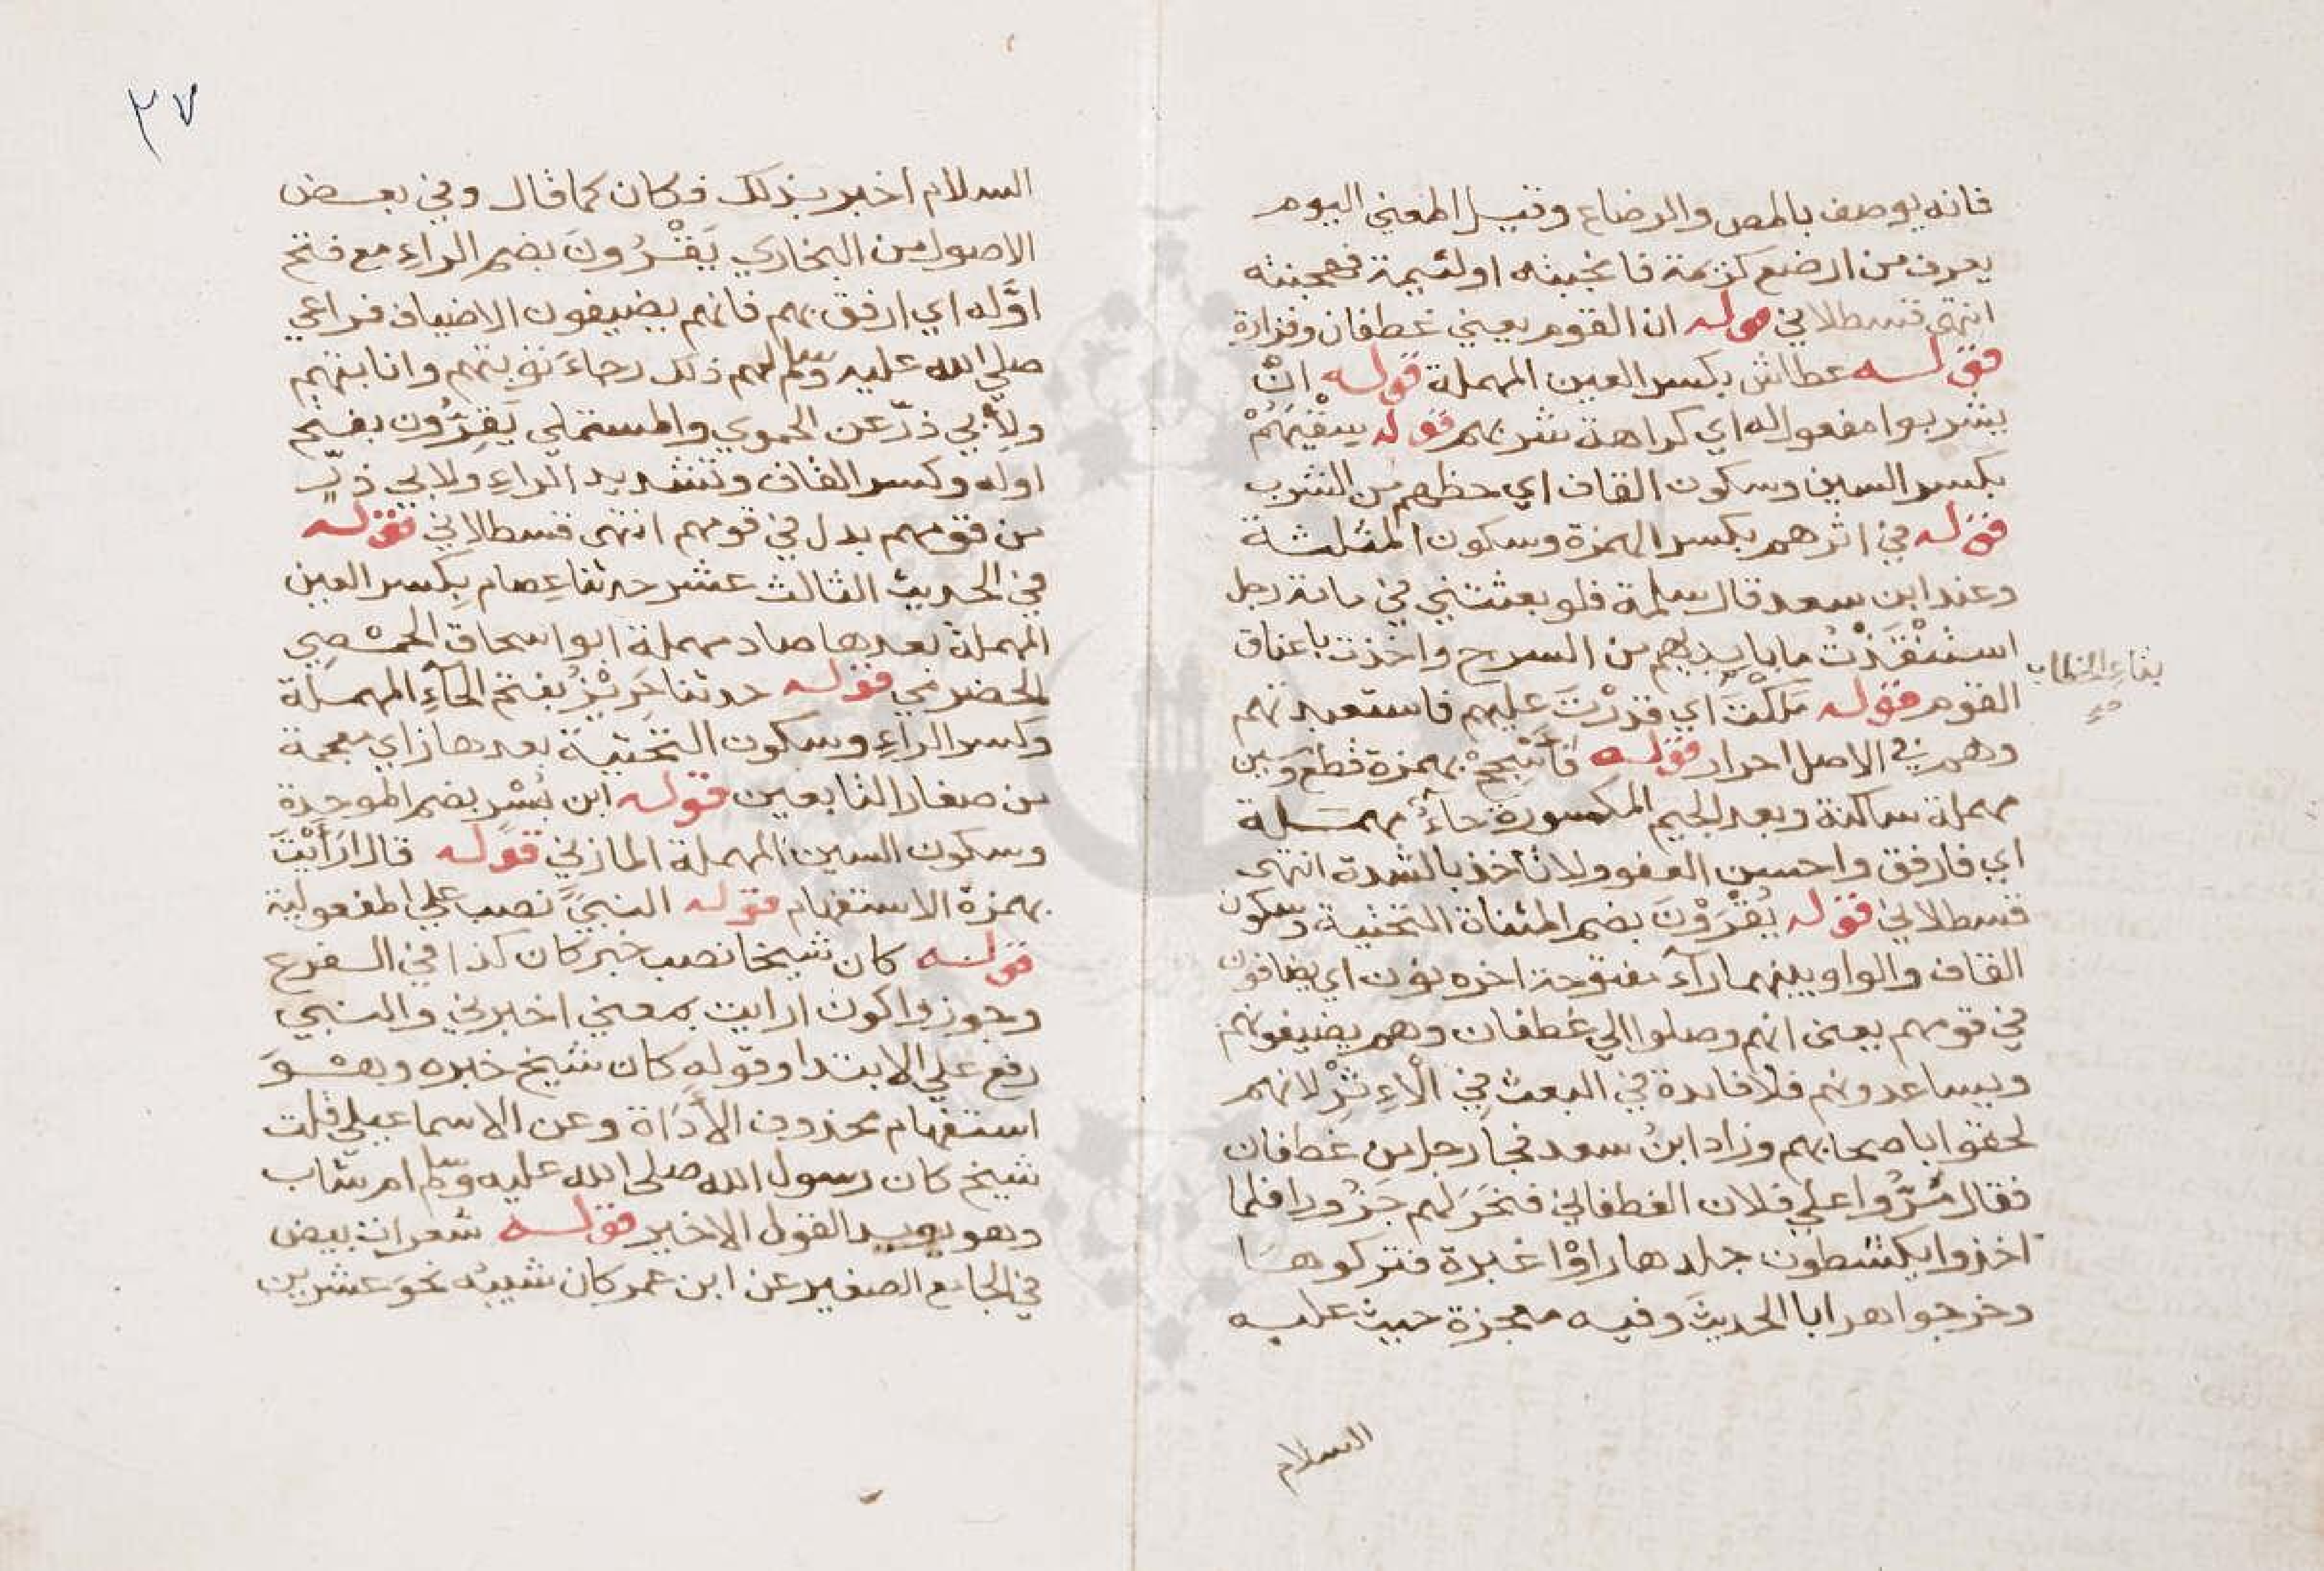 فانه يوصف بالمص والرضاع وقيل المعني اليوم
يعرف من ارضع كريمة فانجبته او لئيمة فهجنته
انتهى قسطلاني قوله ان القوم يعني غطفان وفزارة
قوله عطاش بكسر العين المهملة قوله انْ
يشربوا مفعول له اي كراهة شربهم قوله سِقْيَهُمْ
بكسر السين وسكون القاف اي حظهم من الشرب
قوله في اثرهم بكسر الهمزة وسكون المثلثة
وعند ابن سعد قال سلمة فلو بعثتني في مائة رجل
استنْقَذْتُ ما بايديهم من السرح واخذت باعناق
القوم قوله مَلَكْتَ اي قدرْتَ عليهم فاستعبدتهم
بتاءِ الخطاب صح
وهم في الاصل احرار قوله فاَسْجِحْ بهمزة قطع وسين
مهملة ساكنة وبعد الجيم المكسورة حاءٌ مهملة
اي فارفق واحسن العفو ولا تاخذ بالشدة انتهى
قسطلاني قوله يُقْرَوْنَ بضم المثناة التحتية وسكون
القاف والواو بينهما راء مفتوحة اخره نون اي يضافون
في قومهم يعنى انهم وصلوا الي غطفان وهم يضيفونهم
ويساعدونهم فلا فايدة في البعث في الْاِثِرْ لانهم
لحقوا باصحابهم وزاد ابنُ سعد فجاَ رجل من غطفان
فقال مُرُّوا علي فلان الغطفاني فنحَرَ لهم جَزُورا فلما
اخذوا يكشطون جلدها راوْا غبرة فتركوها
وخرجوا هرابا الحديثَ وفيه معجزة حيث عليه
السلام
٣٧
السلام اخبر بذلك فكان كما قال وفي بعض
الاصول من البخاري يَقْرُونَ بضم الراءِ مع فتح
اوَّله اي ارفق بهم فانهم يضيفون الاضياف فراعي
صلي الله عليه وسلم لهم ذلك رجاءَ توبتهم وانابتهم
ولِأَبي ذرّ عن الحموي والمستملي يَقِرُّون بفتح
اوله وكسر القاف وتشديد الراءِ ولابي ذرٍّ
من قومهم بدل في قومهم انتهى قسطلاني قوله
في الحديث الثالث عشر حدثنا عِصام بِكسر العين
المهملة بعدها صاد مهملة ابو اسحاق الحمْصِي
الحضرمي قوله حدثنا حَرِيْزُ بفتح الحآءِ المهملة
وكسر الراءِ وسكون التحتية بعدها زاي معجمة
من صغار التابعين قوله ابن بُسْرٍ بضم الموحدة
وسكون السين المهملة المازني قوله قال اَرَأَيْتَ
بهمزة الاستفهام قوله النبيَّ نصب علي المفعولية
قوله كان شيخا نصب خبر كان كذا في الفرع
وجوزوا كون ارايت بمعني اخبرني والنبيُ
رفع علي الابتدا وقوله كان شيخ خبره وهوَ
استفهام محذوف الأَدَاة وعن الاسماعيلي قلت
شيخ كان رسول الله صلى الله عليه وسلم ام شاب
وهو يويد القول الاخير قوله شعرات بيض
في الجامع الصغير عن ابن عمر كان شيبُه نحوَ عشرين